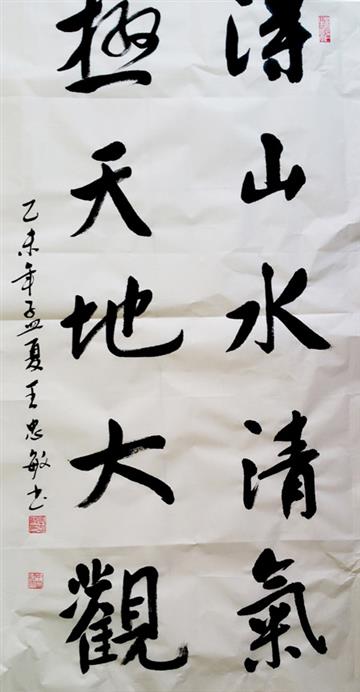 得山水清氣
極天地大觀
乙未年孟夏王忠敏书